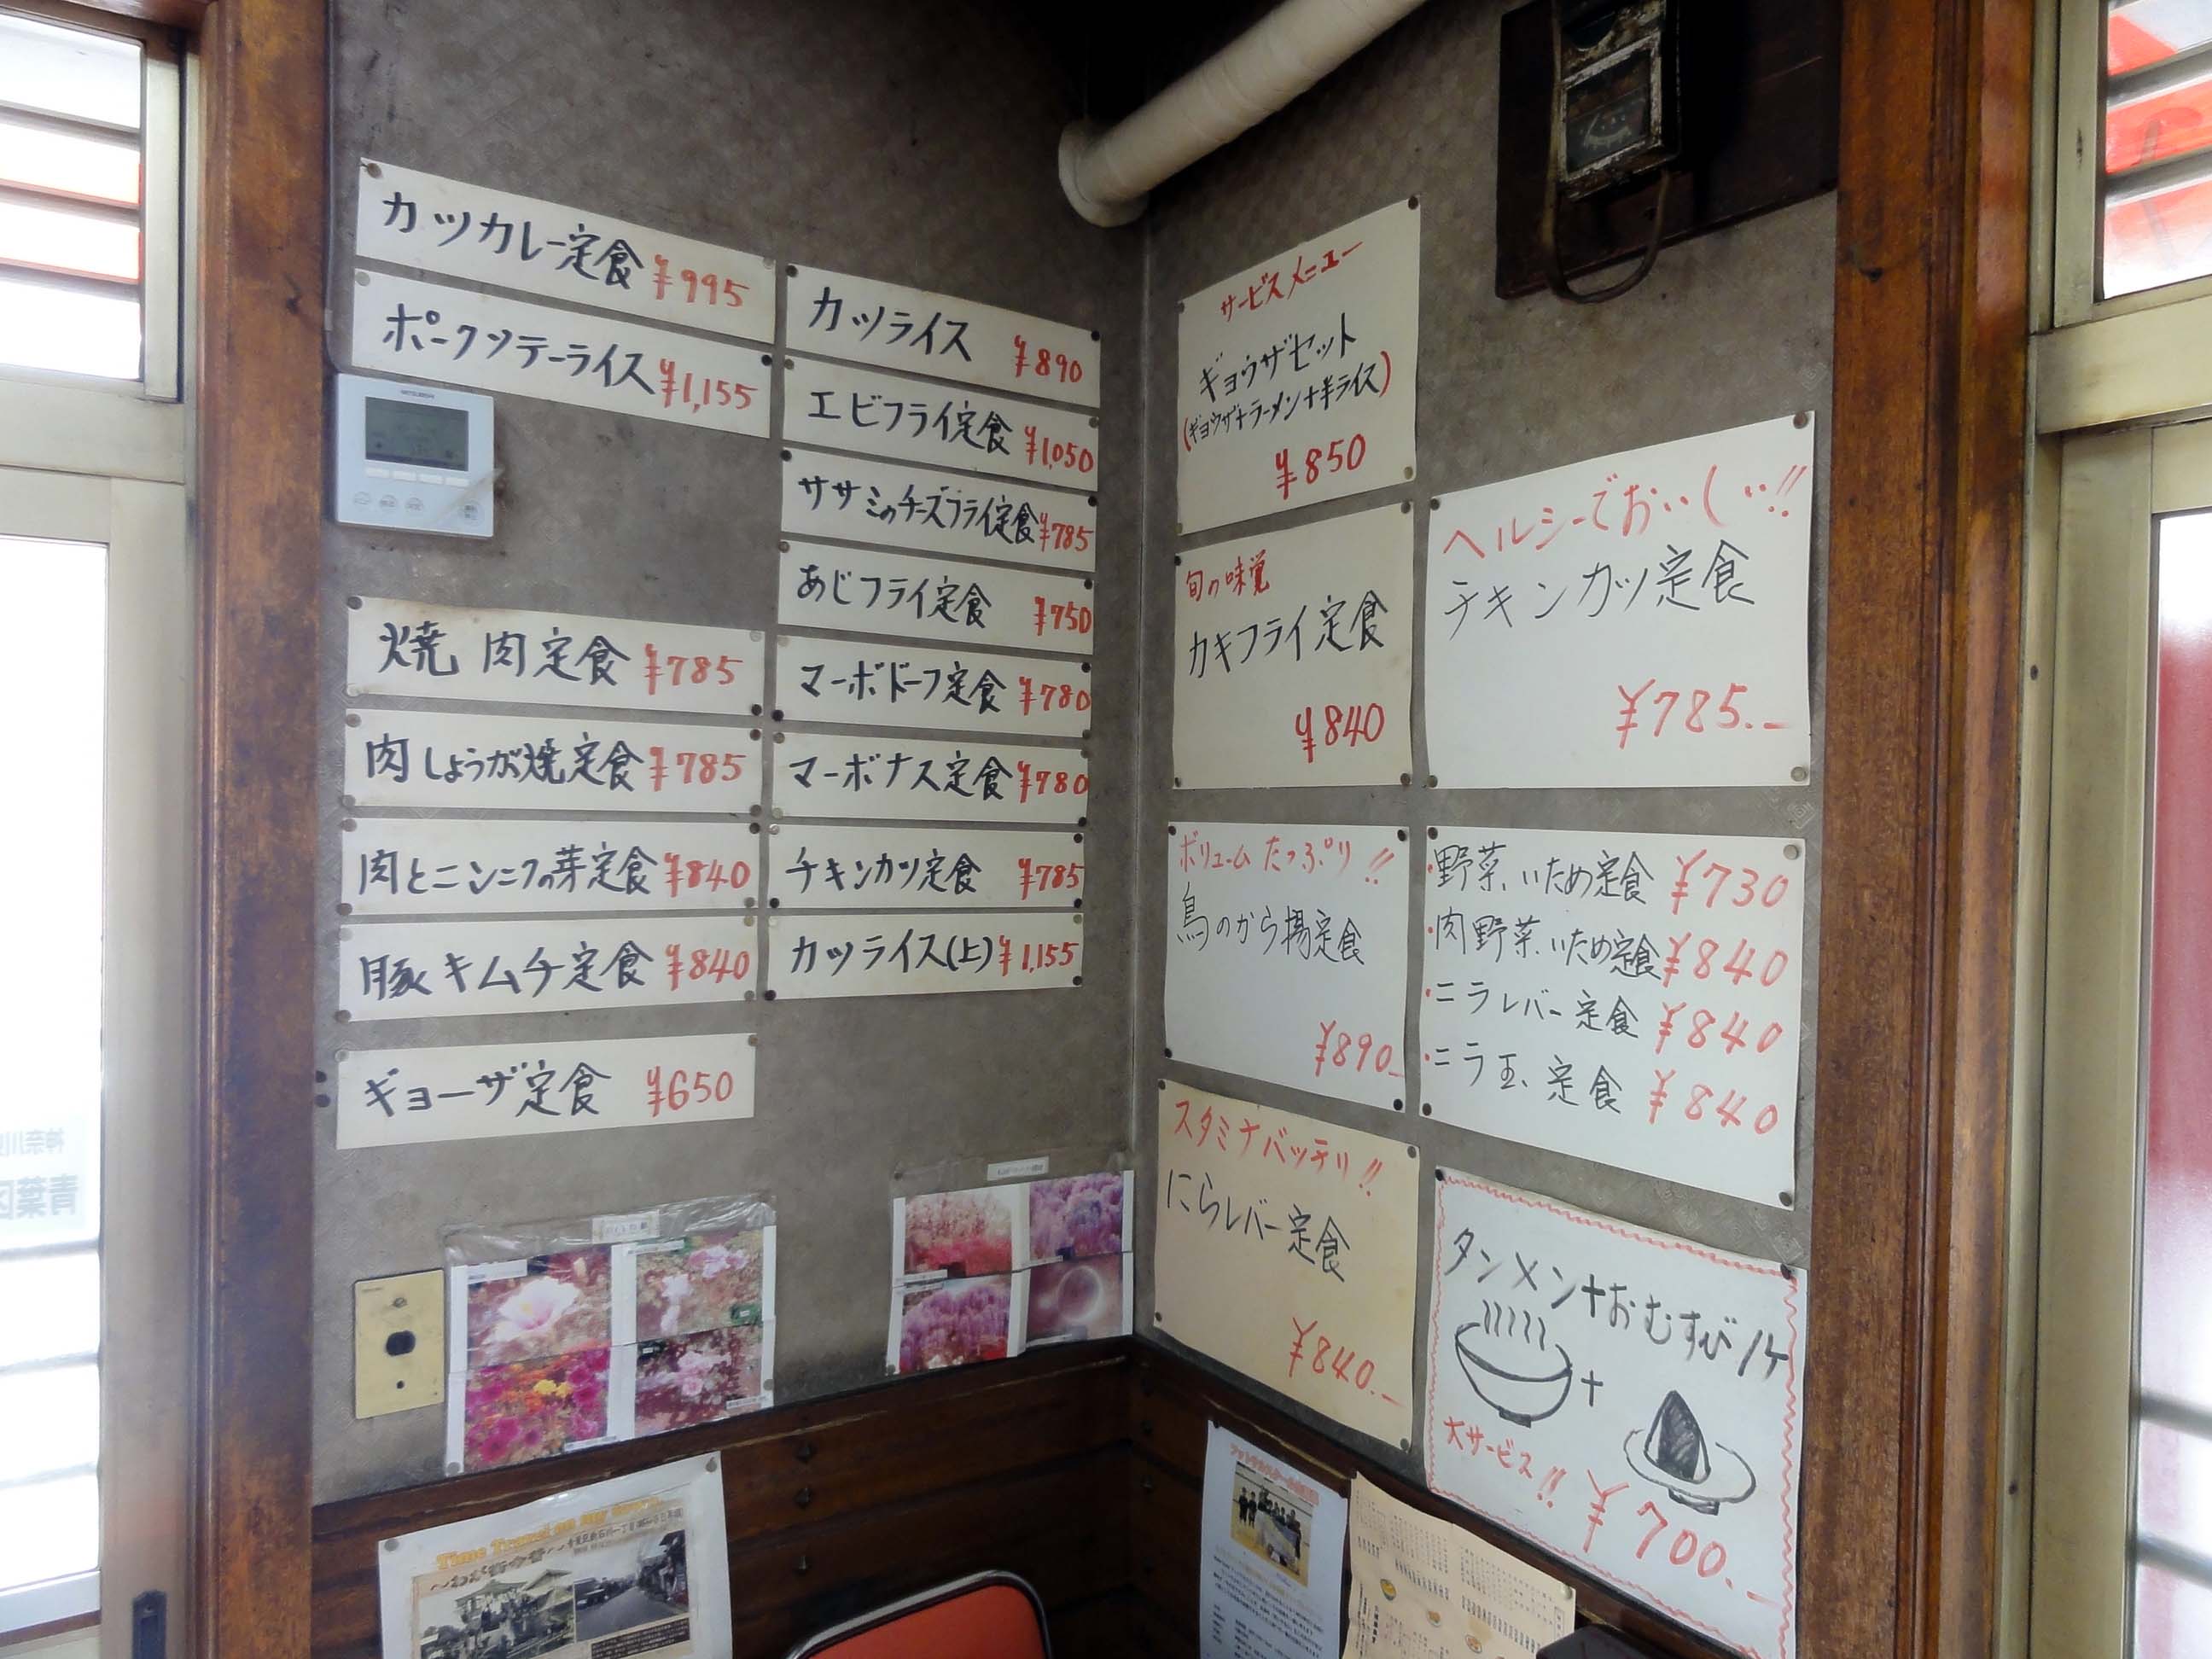 カツカレー定食 ¥995
ポークソテーライス ¥1,155
焼肉定食 ¥785
肉しょうが焼定食 ¥785
肉とニンニクの芽定食 ¥840
豚キムチ定食 ¥840
ギョーザ定食 ¥650
カツライス ¥890
エビフライ定食 ¥1,050
ササミのチーズフライ定食 ¥785
あじフライ定食 ¥750
マーボドーフ定食 ¥780
マーボナス定食 ¥780
チキンカツ定食 ¥785
カツライス(上) ¥1,155
サービスメニュー
ギョウザセット
(ギョウザ+ラーメン+半ライス)
¥850
旬の味覚
カキフライ定食
¥840
ヘルシーでおいしい!!
チキンカツ定食
¥785.-
ボリュームたっぷり!!
鳥のから揚定食
¥890.-
・野菜いため定食 ¥730
・肉野菜いため定食 ¥840
・ニラレバー定食 ¥840
・ニラ玉定食 ¥840
スタミナバッチリ!!
にらレバー定食
¥840.-
タンメン+おむすび1ケ
+
大サービス!!
¥700.-
Time Travel